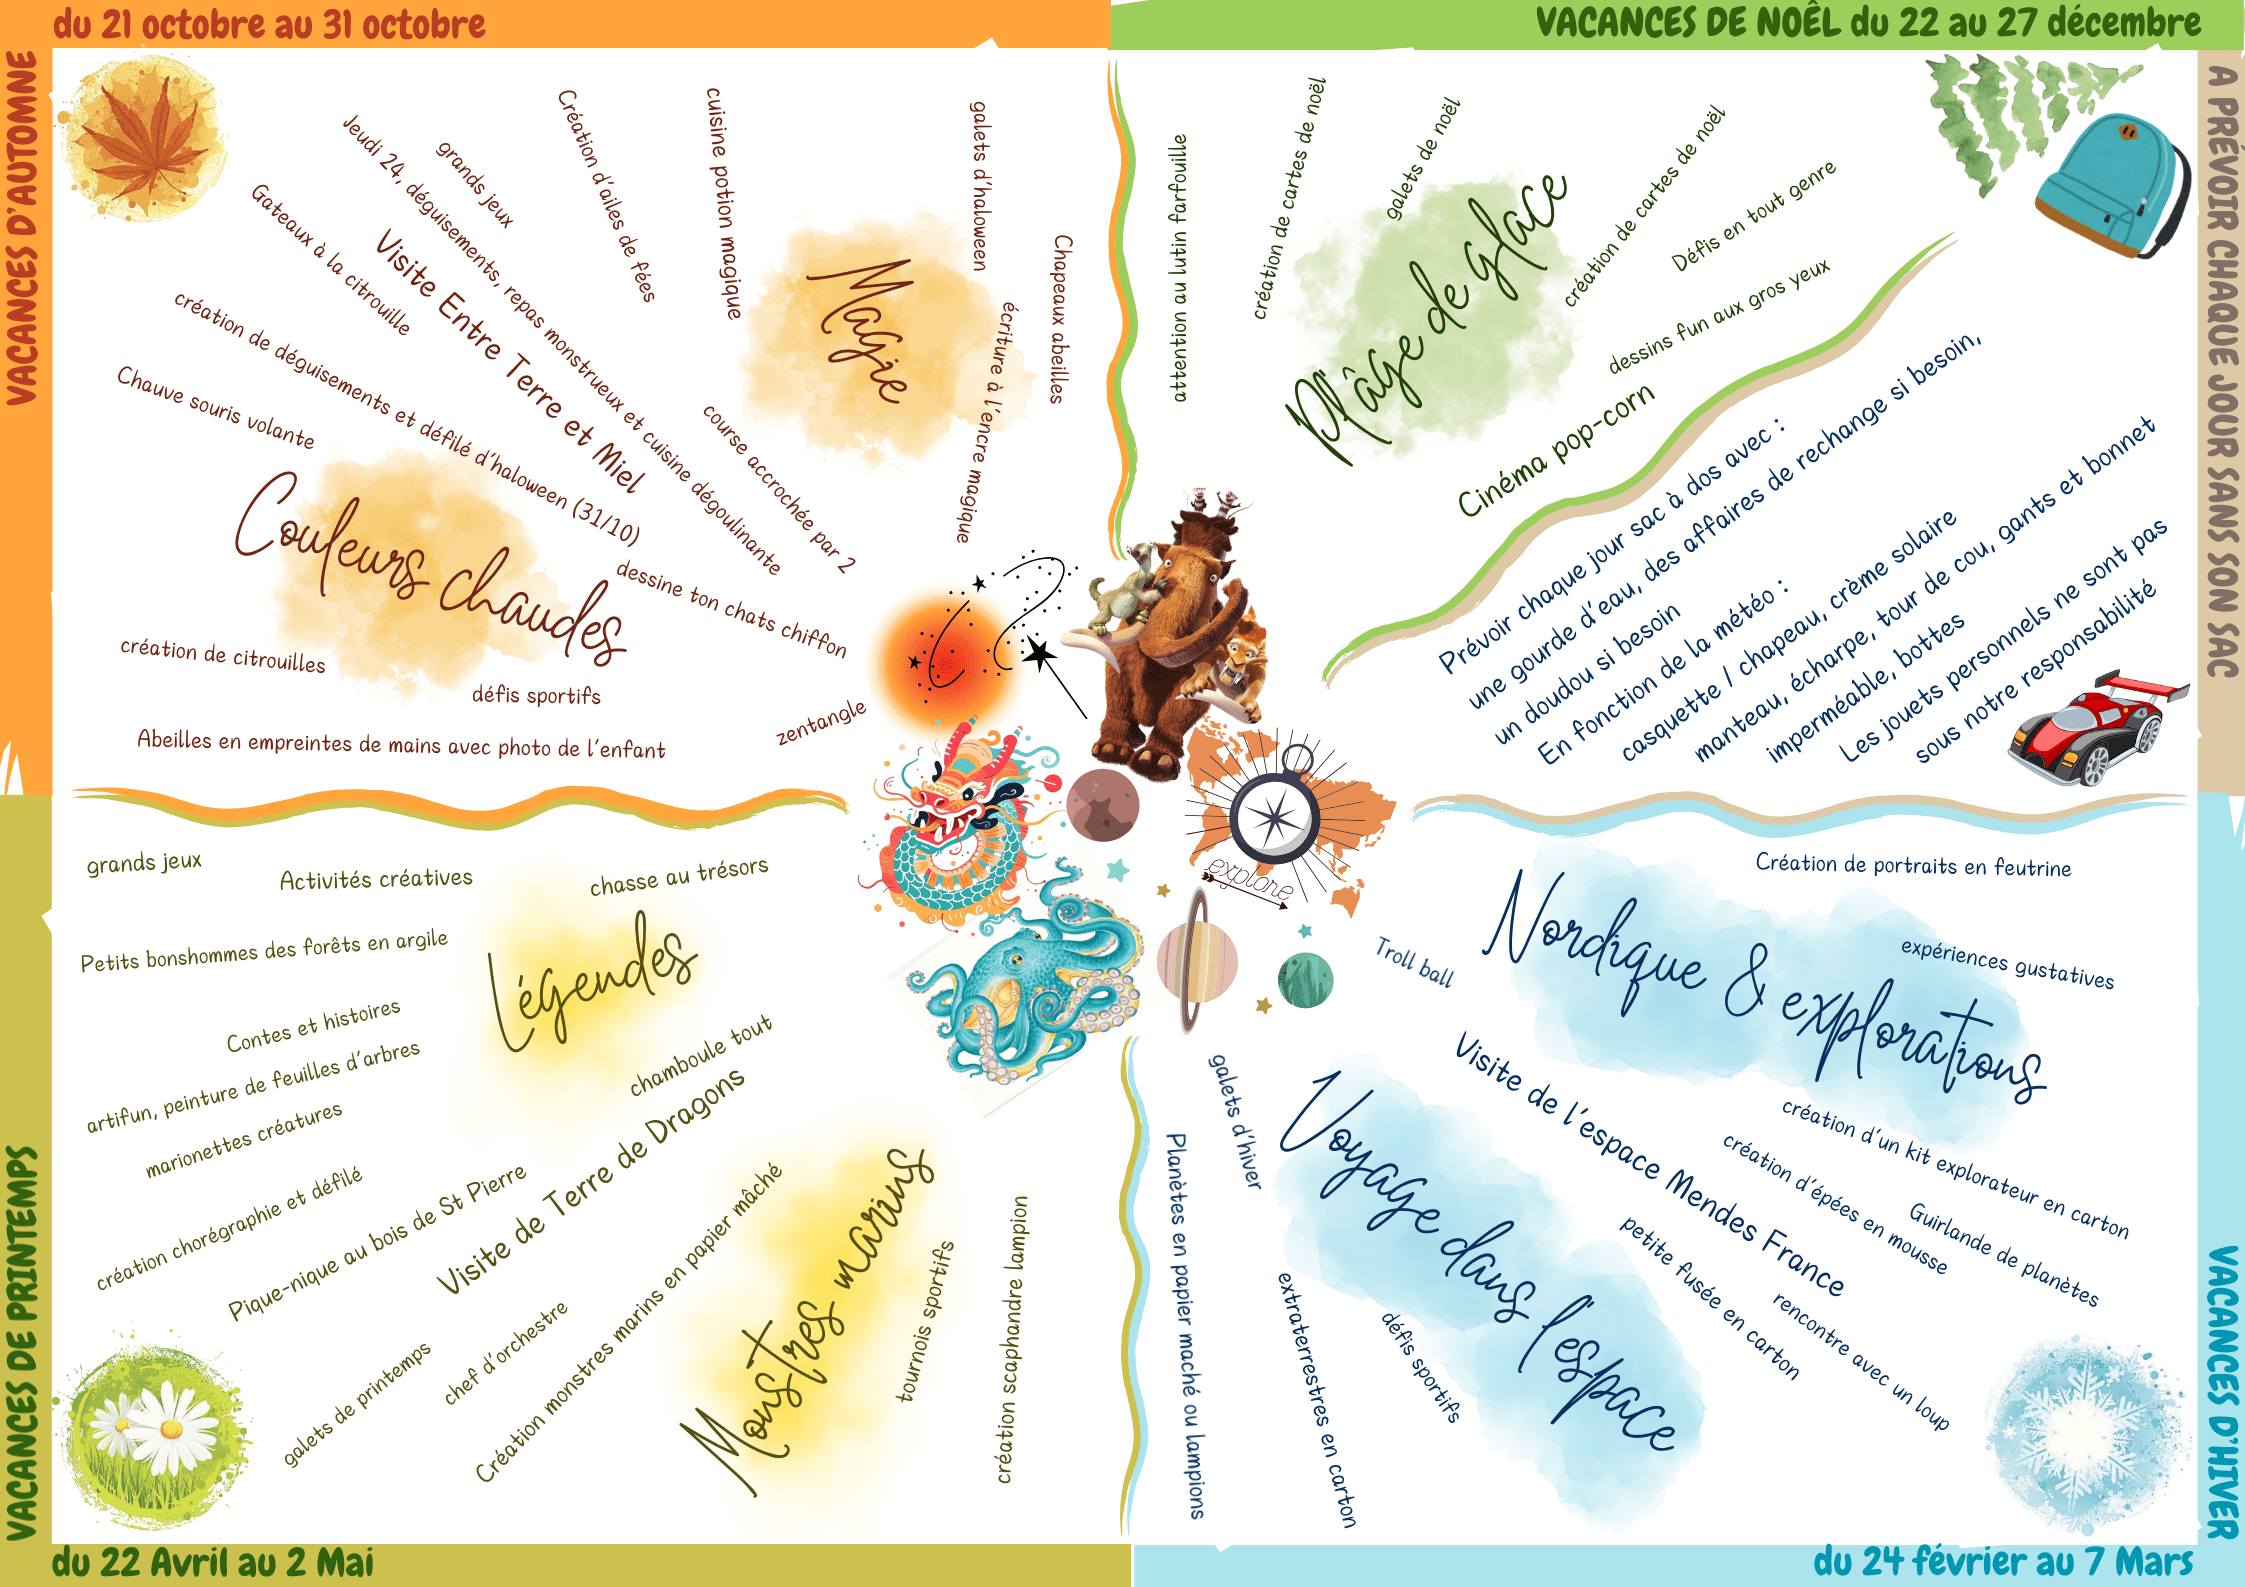 du 21 octobre au 31 octobre
VACANCES D'AUTOMNE
Jeudi 24, déguisements, repas monstrueux et cuisine dégoulinante
grands jeux
Création d'ailes de fées
cuisine potion magique
galets d'haloween
Chapeaux abeilles
écriture à l'encre magique
Magie
Gateaux à la citrouille
Visite Entre Terre et Miel
création de déguisements et défilé d'haloween (31/10)
Chauve souris volante
course accrochée par 2
Couleurs chaudes
dessine ton chats chiffon
création de citrouilles
défis sportifs
zentangle
Abeilles en empreintes de mains avec photo de l'enfant
VACANCES DE NOËL du 22 au 27 décembre
attention au lutin farfouille
création de cartes de noël
galets de noël
création de cartes de noël
Défis en tout genre
dessins fun aux gros yeux
Pl'âge de glace
Cinéma pop-corn
A PRÉVOIR CHAQUE JOUR SANS SON SAC
Prévoir chaque jour sac à dos avec :
une gourde d'eau, des affaires de rechange si besoin,
un doudou si besoin
En fonction de la météo :
casquette / chapeau, crème solaire
manteau, écharpe, tour de cou, gants et bonnet
imperméable, bottes
Les jouets personnels ne sont pas
sous notre responsabilité
explore
VACANCES DE PRINTEMPS
grands jeux
Activités créatives
chasse au trésors
Petits bonshommes des forêts en argile
Légendes
Contes et histoires
artifun, peinture de feuilles d'arbres
marionettes créatures
chamboule tout
création chorégraphie et défilé
Pique-nique au bois de St Pierre
Visite de Terre de Dragons
galets de printemps
chef d'orchestre
Création monstres marins en papier mâché
Monstres marins
tournois sportifs
création scaphandre lampion
du 22 Avril au 2 Mai
VACANCES D'HIVER
Création de portraits en feutrine
Troll ball
Nordique & explorations
expériences gustatives
Visite de l'espace Mendes France
galets d'hiver
Voyage dans l'espace
création d'un kit explorateur en carton
création d'épées en mousse
Guirlande de planètes
petite fusée en carton
rencontre avec un loup
Planètes en papier maché ou lampions
extraterrestres en carton
défis sportifs
du 24 février au 7 Mars